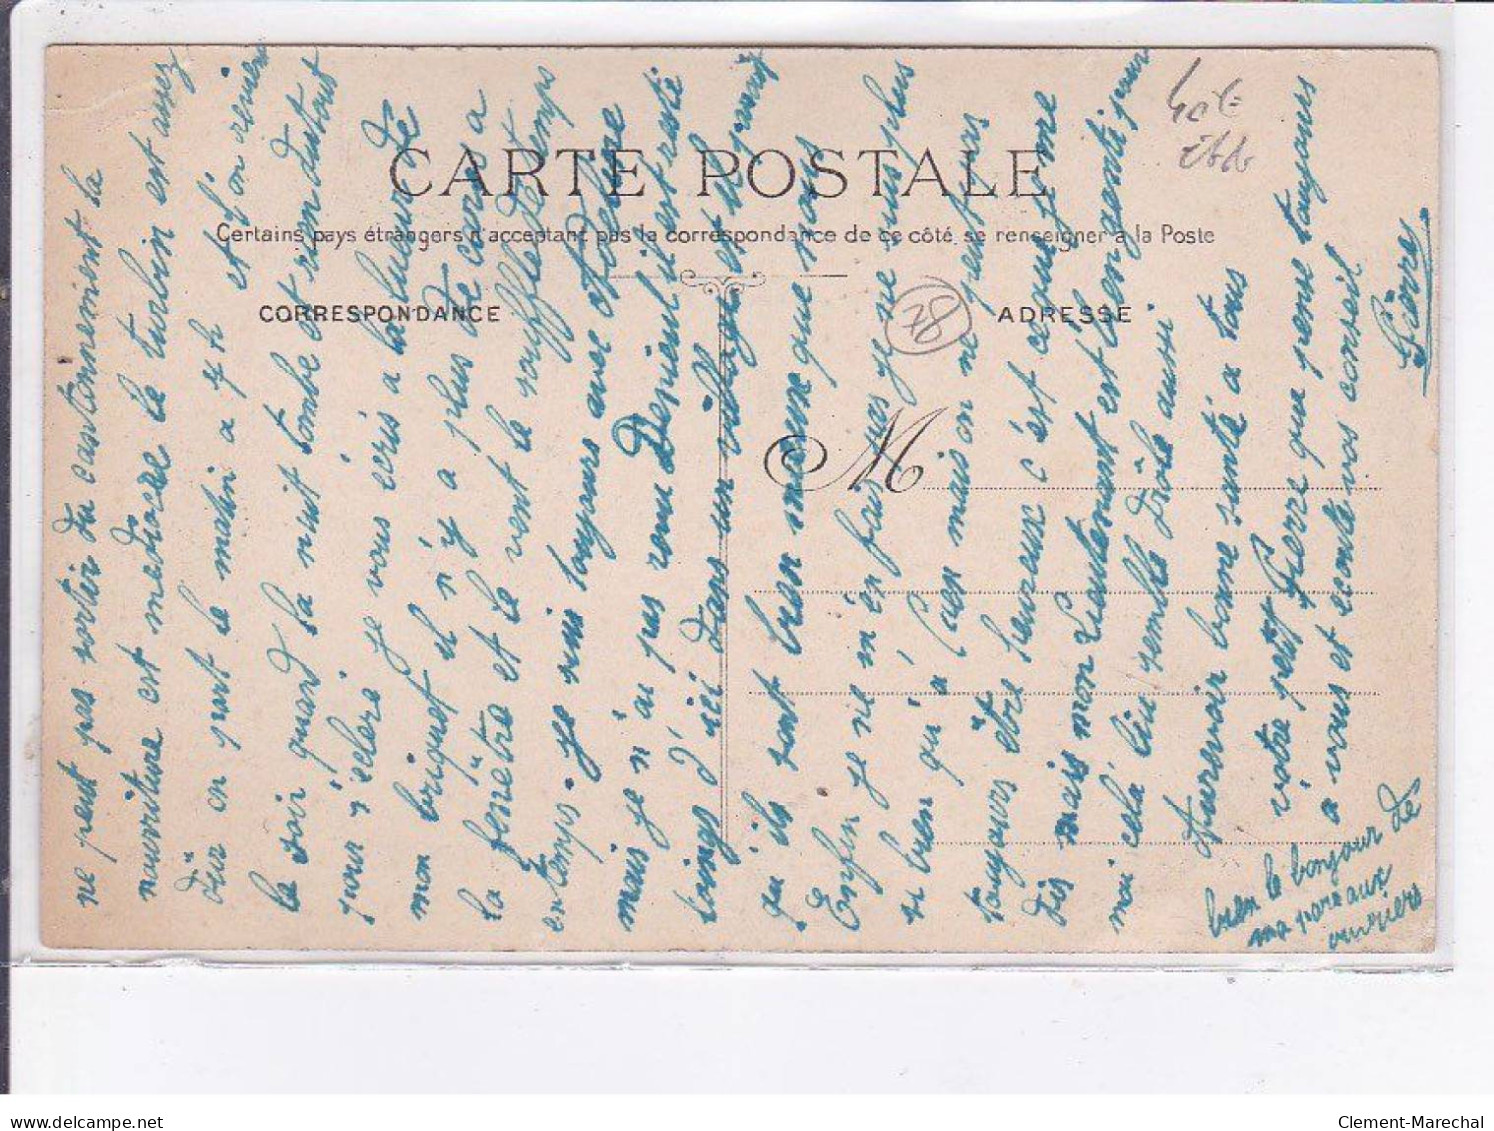 CARTE POSTALE
Certains pays étrangers n'acceptant pas la correspondance de ce côté, se renseigner à la Poste
CORRESPONDANCE
ADRESSE
M
92
ne peut pas sortir du cantonnement la
nourriture est médiocre le turbin est assez
dur on part le matin a 7h et l'on revient
le soir quand la nuit tombe et rien du tout
pour s'ecleré je vous ecris a la lueur de
mon briquet il n'y a plus de careaux a
la fenêtre et le vent le souffle de temps
en temps. je suis toujours avec
mais je n'ai pas vu Depieul il est resté
loings d'ici dans un village et le
qu'ils sont bien mieux que nous
Enfin je ne m'en fais pas je ne suis plus
si bien qu'a Caen mais on ne peut pas
toujours être heureux c'est comme frere
dis mais mon Lieutenant est bien gentil pour
moi cela lui semble drôle aussi
Aurevoir bonne santé a tous
votre petit Pierre qui pense toujours
a vous et ecoute vos conseils
Pierre
bien le bonjour de
ma part aux
ouvriers
Clement-Marechal